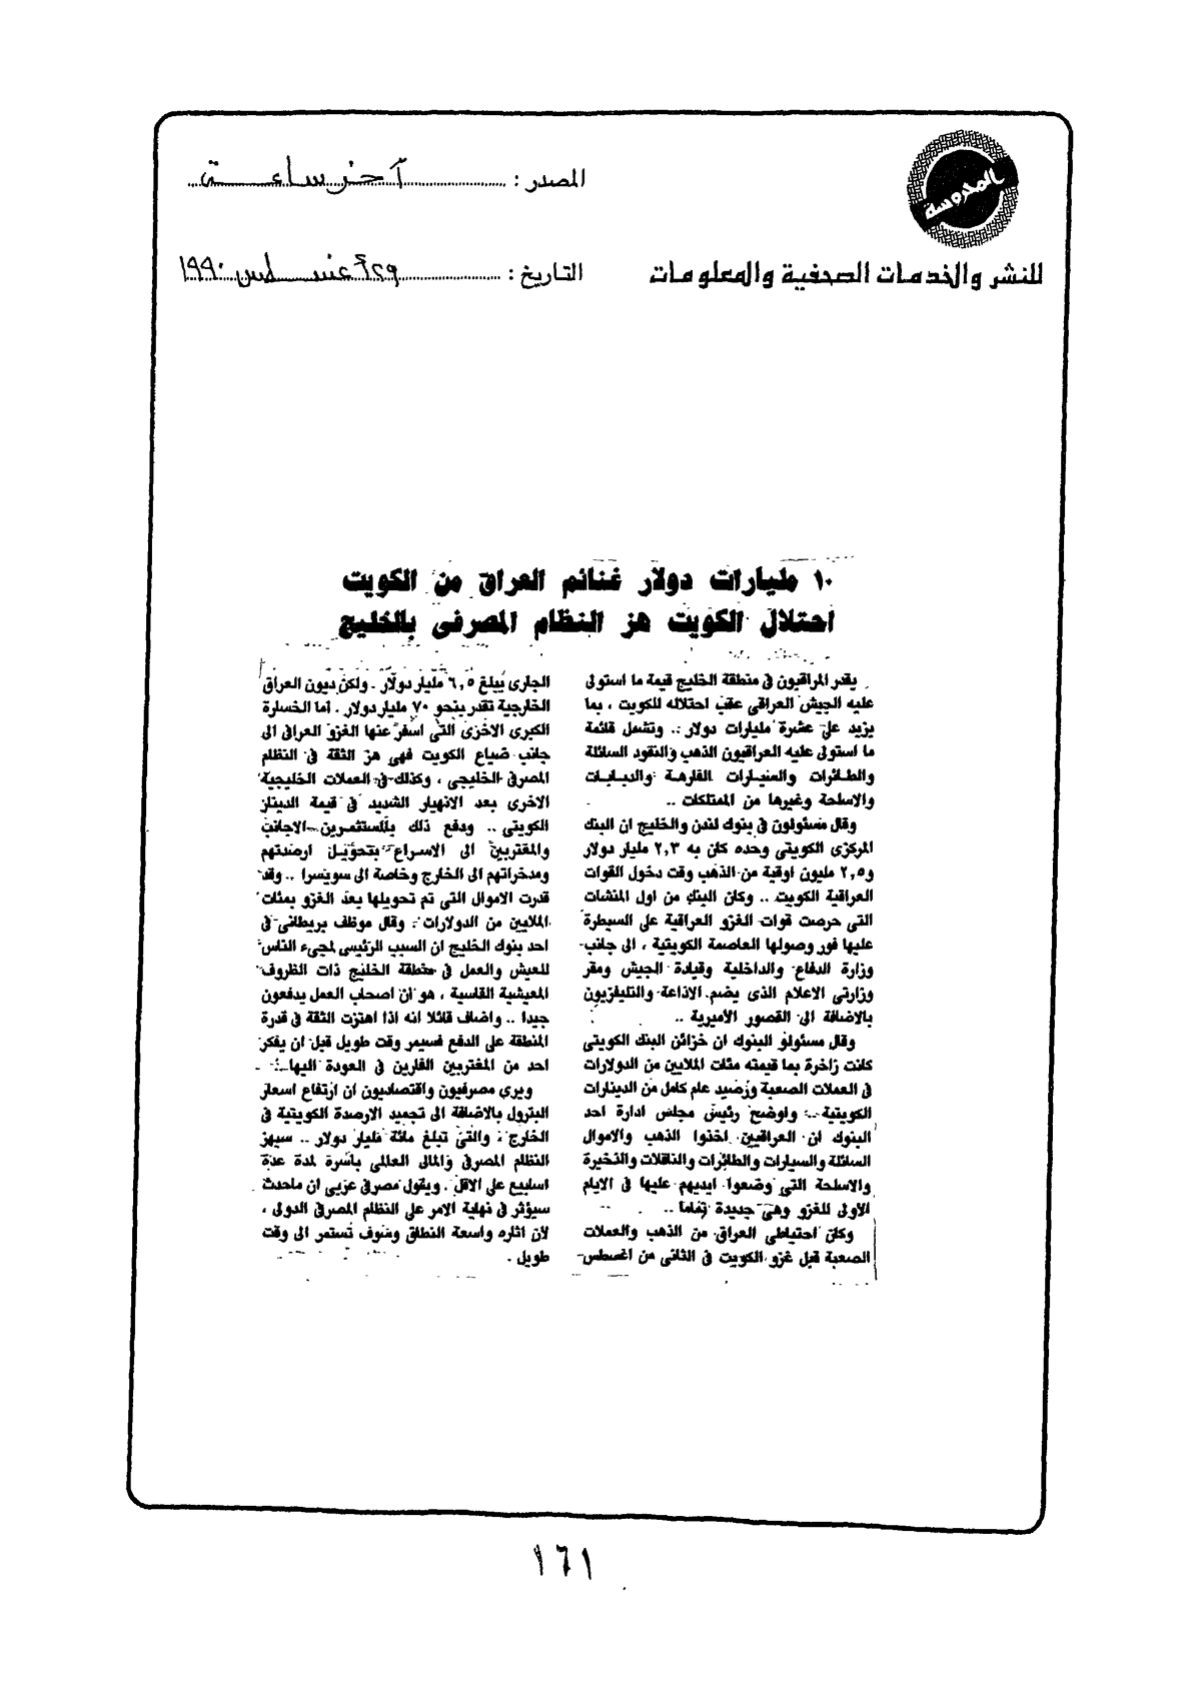 المحروسة
للنشر والخدمات الصحفية والمعلومات
المصدر : آخر ساعة
التاريخ : ٢٩ أغسطس ١٩٩٠
١٠ مليارات دولار غنائم العراق من الكويت
احتلال الكويت هز النظام المصرفى بالخليج
يقدر المراقبون فى منطقة الخليج قيمة ما استولى
عليه الجيش العراقى عقب احتلاله للكويت ، بما
يزيد على عشرة مليارات دولار .. وتشمل قائمة
ما استولى عليه العراقيون الذهب والنقود السائلة
والطائرات والسيارات الفارهة والدبابات
والاسلحة وغيرها من الممتلكات ..
وقال مسئولون فى بنوك لندن والخليج ان البنك
المركزى الكويتى وحده كان به ٢,٣ مليار دولار
و٢,٥ مليون اوقية من الذهب وقت دخول القوات
العراقية الكويت .. وكان البنك من اول المنشات
التى حرصت قوات الغزو العراقية على السيطرة
عليها فور وصولها العاصمة الكويتية ، الى جانب
وزارة الدفاع والداخلية وقيادة الجيش ومقر
وزارتى الاعلام الذى يضم الاذاعة والتليفزيون
بالاضافة الى القصور الأميرية ..
وقال مسئولو البنوك ان خزائن البنك الكويتى
كانت زاخرة بما قيمته مئات الملايين من الدولارات
فى العملات الصعبة ورصيد عام كامل من الدينارات
الكويتية .. واوضح رئيس مجلس ادارة احد
البنوك ان العراقيين اخذوا الذهب والاموال
السائلة والسيارات والطائرات والناقلات والذخيرة
والاسلحة التى وضعوا ايديهم عليها فى الايام
الاولى للغزو وهى جديدة تماما ..
وكان احتياطى العراق من الذهب والعملات
الصعبة قبل غزو الكويت فى الثانى من اغسطس
الجارى يبلغ ٦,٥ مليار دولار . ولكن ديون العراق
الخارجية تقدر بنحو ٧٠ مليار دولار . اما الخسارة
الكبرى الاخرى التى اسفر عنها الغزو العراقى الى
جانب ضياع الكويت فهى هز الثقة فى النظام
المصرفى الخليجى ، وكذلك فى العملات الخليجية
الاخرى بعد الانهيار الشديد فى قيمة الدينار
الكويتى .. ودفع ذلك بالمستثمرين الاجانب
والمغتربين الى الاسراع بتحويل ارصدتهم
ومدخراتهم الى الخارج وخاصة الى سويسرا .. وقد
قدرت الاموال التى تم تحويلها بعد الغزو بمئات
الملايين من الدولارات . وقال موظف بريطانى فى
احد بنوك الخليج ان السبب الرئيسى لمجىء الناس
للعيش والعمل فى منطقة الخليج ذات الظروف
المعيشية القاسية ، هو ان اصحاب العمل يدفعون
جيدا .. واضاف قائلا انه اذا اهتزت الثقة فى قدرة
المنطقة على الدفع فسيمر وقت طويل قبل ان يفكر
احد من المغتربين الفارين فى العودة اليها ..
ويرى مصرفيون واقتصاديون ان ارتفاع اسعار
البترول بالاضافة الى تجميد الارصدة الكويتية فى
الخارج ، والتى تبلغ مائة مليار دولار .. سيهز
النظام المصرفى والمالى العالمى باسره لمدة عدة
اسابيع على الاقل . ويقول مصرفى عربى ان ماحدث
سيؤثر فى نهاية الامر على النظام المصرفى الدولى ،
لان اثاره واسعة النطاق وسوف تستمر الى وقت
طويل .
١٦١